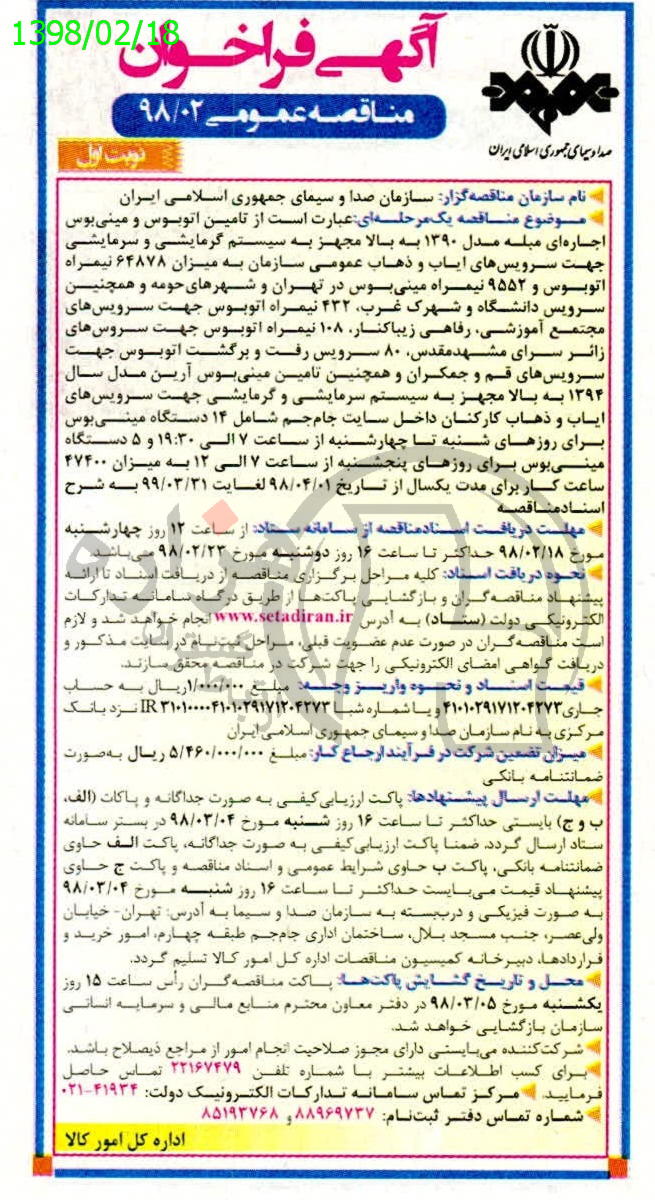 1398/02/18
آگهی فراخوان
مناقصه عمومی ۹۸/۰۲
نوبت اول
صدا و سیمای جمهوری اسلامی ایران
نام سازمان مناقصه‌گزار: سـازمان صدا و سیمای جمهوری اسـلامی ایران
مـوضوع منـاقصه یک‌مرحلـه‌ای:عبارت اسـت از تامیـن اتوبـوس و مینی‌بوس
اجـاره‌ای مبلـه مـدل ۱۳۹۰ بـه بـالا مجهـز بـه سیسـتم گرمایشـی و سرمایشـی
جهـت سـرویس‌های ایـاب و ذهـاب عمومـی سـازمان بـه میـزان ۶۴۸۷۸ نیمـراه
اتوبـوس و ۹۵۵۲ نیمـراه مینی‌بـوس در تهـران و شـهرهای‌حومه و همچنیـن
سـرویس دانشـگاه و شـهرک غـرب، ۴۳۲ نیمـراه اتوبـوس جهـت سـرویس‌های
مجتمـع آموزشـی، رفاهـی زیباکنـار، ۱۰۸ نیمـراه اتوبـوس جهـت سـروس‌های
زائـر سـرای مشـهدمقدس، ۸۰ سـرویس رفـت و برگشـت اتوبـوس جهـت
سـرویس‌های قـم و جمکـران و همچنیـن تامیـن مینی‌بـوس آریـن مـدل سـال
۱۳۹۴ بـه بـالا مجهـز بـه سیسـتم سرمایشـی و گرمایشـی جهـت سـرویس‌های
ایـاب و ذهـاب کارکنـان داخـل سـایت جام‌جـم شـامل ۱۴ دسـتگاه مینـی‌بوس
بـرای روزهـای شـنبه تـا چهارشـنبه از سـاعت ۷ الـی ۱۹:۳۰ و ۵ دسـتگاه
مینـی‌بوس بـرای روزهـای پنجشـنبه از سـاعت ۷ الـی ۱۲ بـه میـزان ۴۷۴۰۰
ساعت کـار برای مدت یکسال از تـاریخ ۹۸/۰۴/۰۱ لغـایت ۹۹/۰۳/۳۱ بـه شـرح
اسنادمناقصـه
مهلـت دریافـت اسـنادمناقصه از سـامانه سـتاد: از سـاعت ۱۲ روز چهارشـنبه
مـورخ ۹۸/۰۲/۱۸ حداکثـر تـا سـاعت ۱۶ روز دوشـنبه مـورخ ۹۸/۰۲/۲۳ می‌باشـد.
نحـوه دریافـت اسـناد: کلیه مراحـل برگـزاری مناقصـه از دریافـت اسـناد تا ارائـه
پیشـنهاد مناقصـه‌گـران و بازگشـایی پاکت‌هـا از طریـق درگاه سـامانـه تـدارکـات
الکترونیکـی دولـت (سـتاد) بـه آدرس www.setadiran.ir انجام خواهـد شـد و لازم
اسـت مناقصـه‌گـران در صـورت عـدم عضـویـت قبلـی، مـراحل ثبت‌نـام در سـایت مذکـور و
دریافت گواهی امضای الکترونیکی را جهت شرکت در مناقصه محقق سازند.
قیمـت اسـناد و نحـوه واریـز وجـه: مبلـغ ۱/۰۰۰/۰۰۰ریـال بـه حسـاب
جاری۴۱۰۱۰۲۹۱۷۱۲۰۴۲۷۳ و یـا شماره شبـا IR ۳۱۰۱۰۰۰۰۴۱۰۱۰۲۹۱۷۱۲۰۴۲۷۳ نـزد بانـک
مرکـزی به نام سازمان صدا و سیمای جمهوری اسلامی ایران
میـزان تضمین شرکت در فـرآیند ارجاع کـار: مبلـغ ۵/۴۶۰/۰۰۰/۰۰۰ ریـال به‌صورت
ضمانتنامـه بانکـی
مهلـت ارسـال پیشـنهادها: پاکت ارزیابی‌کیفـی به صورت جداگانـه و پاکات (الف،
ب و ج) بایستی حداکثـر تـا ساعت ۱۶ روز شـنبه مـورخ ۹۸/۰۳/۰۴ در بستر سامانه
ستاد ارسال گـردد. ضمنـا پـاکت ارزیابی‌کیفـی به صورت جداگانـه، پاکت الـف حاوی
ضمانتنـامه بانکی، پاکت ب حاوی شرایط عمومـی و اسناد مناقصـه و پاکت ج حاوی
پیشـنهاد قیمـت می‌بایسـت حداکثـر تـا سـاعت ۱۶ روز شنبـه مـورخ ۹۸/۰۳/۰۴
بـه صـورت فیزیکـی و دربـبسته بـه سـازمان صـدا و سیمـا به آدرس: تهـران- خیابـان
ولی‌عصـر، جنـب مسـجد بـلال، سـاختمان اداری جام‌جـم طبقـه چهـارم، امـور خریـد و
قـراردادهـا، دبیـرخـانه کمیسیون مناقصات اداره کـل امور کـالا تسلیم گـردد.
محـل و تاریـخ گشـایش پاکت‌هـا: پـاکت مناقصـه‌گـران رأس سـاعت ۱۵ روز
یکشـنبه مـورخ ۹۸/۰۳/۰۵ در دفتـر معـاون محتـرم منابـع مـالـی و سـرمایـه انسـانـی
سازمان بازگشـایی خواهـد شد.
شـرکت‌کننـده می‌بـایستی دارای مجوز صلاحیت انجام امور از مراجع ذیصلاح باشـد.
بـرای کسـب اطلاعـات بیشتـر بـا شمـاره تلفـن ۲۲۱۶۷۴۷۹ تمـاس حاصـل
فرماییـد. مرکـز تماس سـامانـه تـدارکـات الکترونیـک دولت: ۴۱۹۳۴-۰۲۱
شماره تماس دفتـر ثبت‌نـام: ۸۸۹۶۹۷۳۷ و ۸۵۱۹۳۷۶۸
اداره کل امور کالا